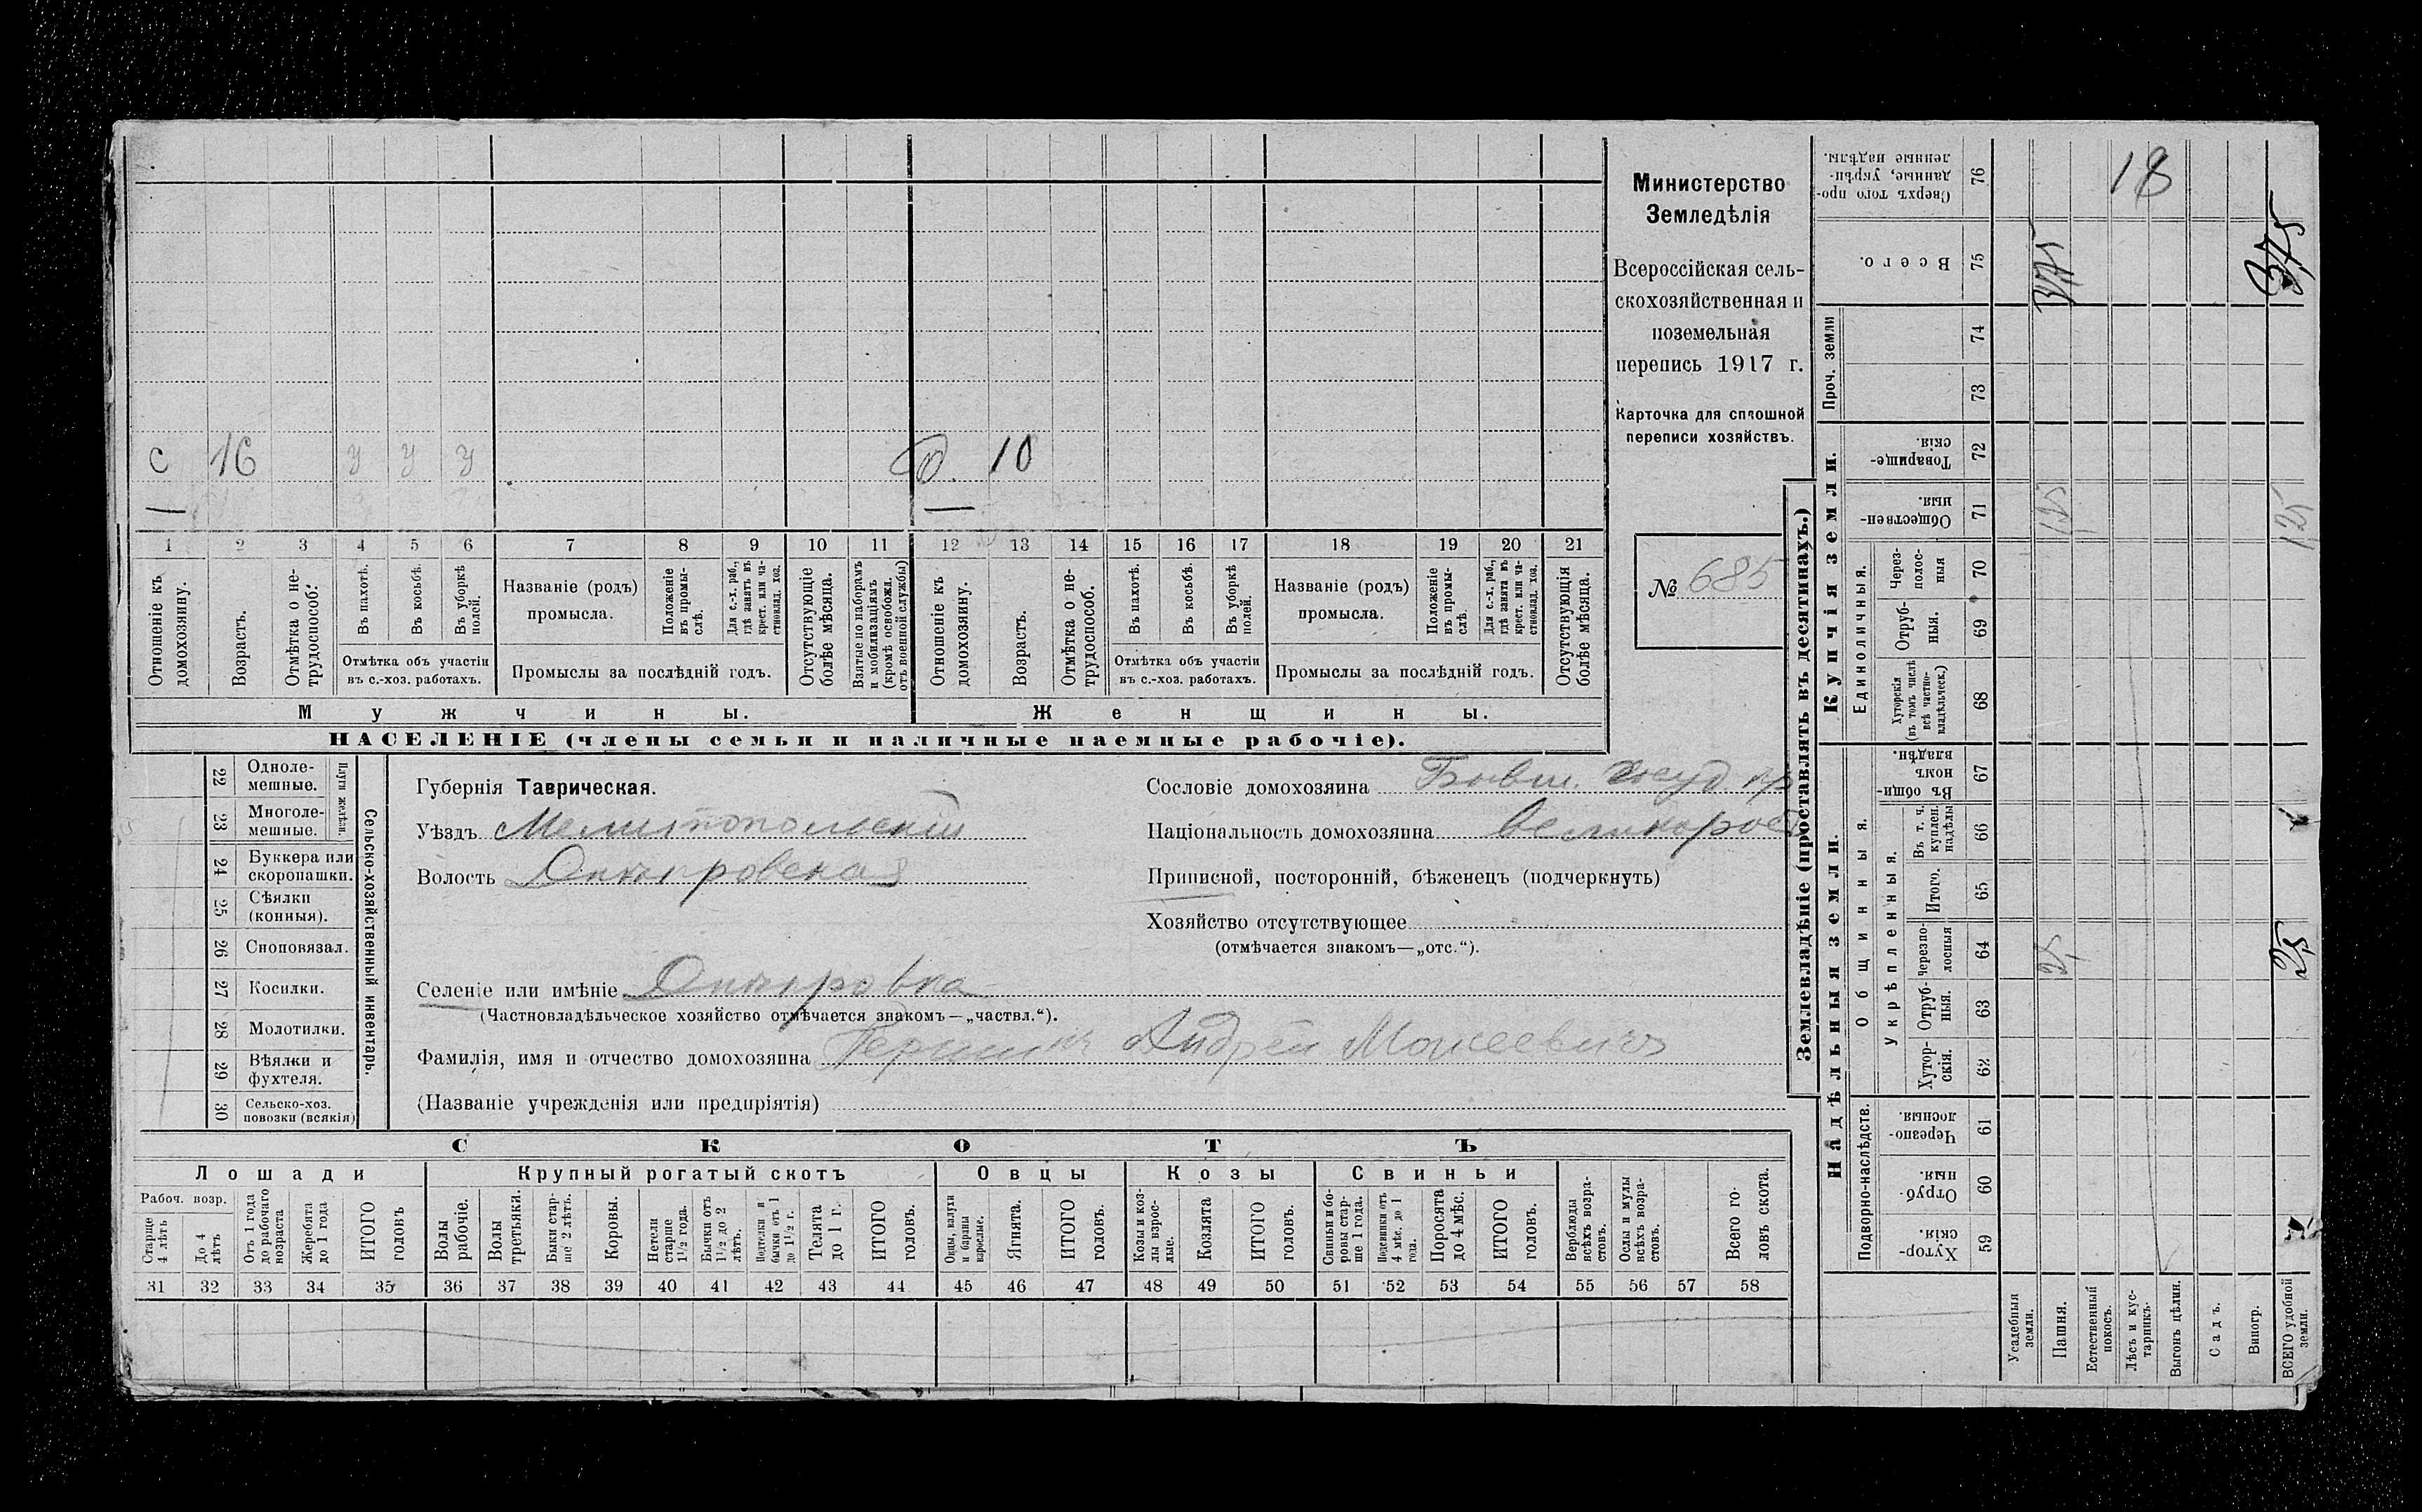 с 16 у у у д. 10
1 2 3 4 5 6 7 8 9 10 11 12 13 14 15 16 17 18 19 20 21
Отношеніе къ домохозяину.
Возрастъ.
Отмѣтка о нетрудоспособ.
Въ пахотѣ.
Въ косьбѣ.
Въ уборкѣ полей.
Отмѣтка объ участіи
въ с.-хоз. работахъ.
Названіе (родъ)
промысла.
Положеніе въ промыслѣ.
Для с.-х. раб., гдѣ занятъ въ крест. или частновлад. хоз.
Промыслы за послѣдній годъ.
Отсутствующіе болѣе мѣсяца.
Взятые по наборамъ и мобилизаціямъ (кромѣ освобожд. отъ военной службы)
Отношеніе къ домохозяину.
Возрастъ.
Отмѣтка о нетрудоспособ.
Въ пахотѣ.
Въ косьбѣ.
Въ уборкѣ полей.
Отмѣтка объ участіи
въ с.-хоз. работахъ.
Названіе (родъ)
промысла.
Положеніе въ промыслѣ.
Для с.-х. раб., гдѣ занята въ крест. или частновлад. хоз.
Промыслы за послѣдній годъ.
Отсутствующія болѣе мѣсяца.
Мужчины. Женщины.
НАСЕЛЕНІЕ (члены семьи и наличные наемные рабочіе).
Министерство
Земледѣлія
Всероссійская сель-
скохозяйственная и
поземельная
перепись 1917 г.
Карточка для сплошной
переписи хозяйствъ.
№ 685
22 Одноле-
мешные.
23 Многоле-
мешные.
Плуги желѣзн.
24 Буккера или
скоропашки.
25 Сѣялки
(конныя).
26 Сноповязал.
27 Косилки.
28 Молотилки.
29 Вѣялки и
фухтеля.
30 Сельско-хоз.
повозки (всякія)
Сельско-хозяйственный инвентарь.
Губернія Таврическая.
Уѣздъ Мелитопольскій
Волость
Селеніе или имѣніе
(Частновладѣльческое хозяйство отмѣчается знакомъ—„частвл.“).
Фамилія, имя и отчество домохозяина Андрей Моисеевичъ
(Названіе учрежденія или предпріятія)
Сословіе домохозяина Бывш. госуд кр
Національность домохозяина великорос
Приписной, посторонній, бѣженецъ (подчеркнуть)
Хозяйство отсутствующее
(отмѣчается знакомъ—„отс.“).
СКОТЪ
Лошади Крупный рогатый скотъ Овцы Козы Свиньи
Рабоч. возр.
Старше 4 лѣтъ
До 4 лѣтъ
Отъ 1 года до рабочаго возраста
Жеребята до 1 года
ИТОГО головъ
Волы рабочіе.
Волы третьяки.
Быки старше 2 лѣтъ.
Коровы.
Нетели старше 1½ года.
Бычки отъ 1½ до 2 лѣтъ.
Подтелки и бычки отъ 1 до 1½ г.
Телята до 1 г.
ИТОГО головъ.
Овцы, валухи и бараны взрослые.
Ягнята.
ИТОГО головъ.
Козы и козлы взрослые.
Козлята
ИТОГО головъ.
Свиньи и боровы старше 1 года.
Подсвинки отъ 4 мѣс. до 1 года.
Поросята до 4 мѣс.
ИТОГО головъ.
Верблюды всѣхъ возрастовъ.
Ослы и мулы всѣхъ возрастовъ.
Всего головъ скота.
31 32 33 34 35 36 37 38 39 40 41 42 43 44 45 46 47 48 49 50 51 52 53 54 55 56 57 58
Землевладѣніе (проставлять въ десятинахъ.)
Надѣльныя земли. Купчія земли. Проч. земли
Подворно-наслѣдств.
Общинныя.
Укрѣпленныя.
Единоличныя.
Хуторскія 59
Отрубныя. 60
Черезполосныя. 61
Хуторскія. 62
Отрубныя. 63
Черезполосныя 64
Итого. 65
Въ т. ч. куплен. надѣлы 66
Въ общинномъ владѣн. 67
Хуторскія (въ томъ числѣ всѣ частновладѣльческ.) 68
Отрубныя. 69
Черезполосныя 70
Общественныя. 71
Товарищескія. 72
73
74
Всего. 75
Сверхъ того проданные, укрѣпленные надѣлы. 76
Усадебныя земли.
Пашня. 25 125 375
Естественный покосъ.
Лѣсъ и кустарникъ.
18
Выгонъ цѣлин.
Садъ.
Виногр.
ВСЕГО удобной земли. 25 125 375